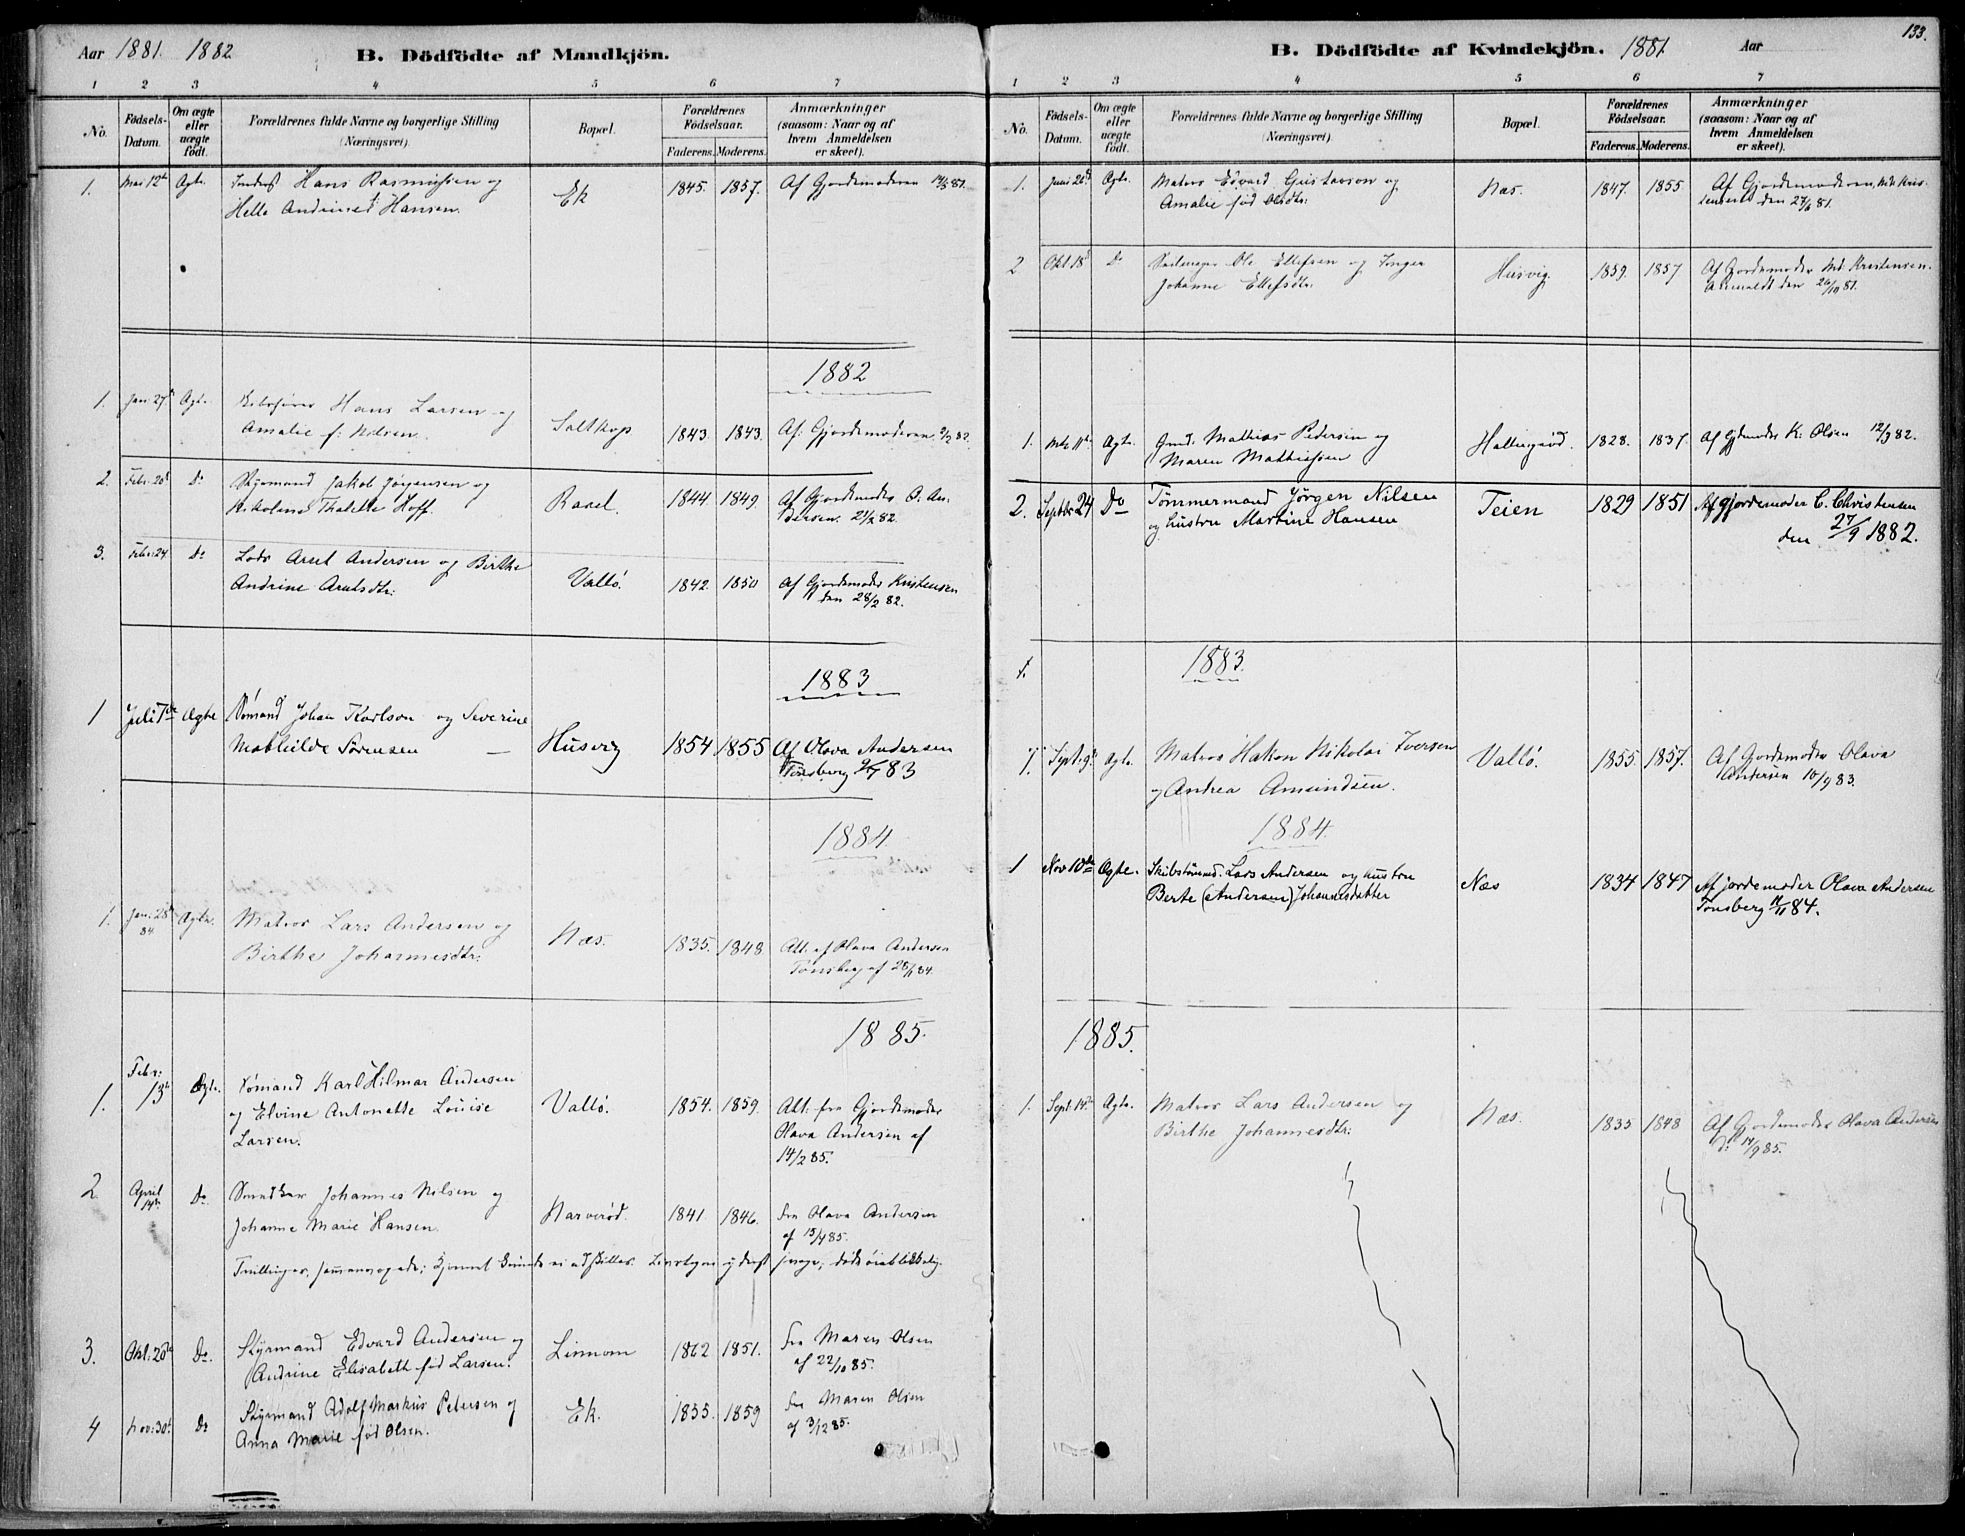 Aar 1881. 1882 B. Dödfödte af Mandkjön.
1 2 3 4 5 6 7
No. Födsels-Datum. Om ægte eller uægte födt. Forældrenes fulde Navne og borgerlige Stilling (Næringsvei). Bopæl. Forældrenes Födselsaar. Faderens. Moderens. Anmærkninger (saasom: Naar og af hvem Anmeldelsen er skeet).
1. Mai 12te Ægte. Hans Rasmussen og Ek 1845. 1857. Af Gjordemoderen
Helle Andrine Hansen.
1882
1. Jan: 27de Ægte. Hans Larsen og
Amalie f: Nilsen. Saltkop 1843. 1843. Af: Gjordemoderen 2/2 82.
2. Febr: 20de Do Styrmand Jakob Jørgensen og
Nikoline Thalette Hoff. Rasel. 1844. 1849. Af Gjordemoder O. An-
dersen. 21/2 82.
3. Febr: 24. Do Lods Arnt Andersen og Birthe
Andrine Arntsdtr: Vallö. 1842. 1850 Af Gjordemoder Kristensen
den 28/2 82.
1883
1 Juli 7de Ægte Sømand Johan Karlson og Severine
Mathilde Sørensen Husvig 1854 1855 Af Olava Andersen
Tønsberg 9/7 83
1884
1. Jan: 28de 84 Ægte. Matros Lars Andersen og
Birthe Johannesdtr: Næs. 1835. 1848. Att. af Olava Andersen
Tønsberg af 28/1 84.
1885.
1. Febr: 13de Ægte. Sømand Karl Hilmar Andersen
og Elvine Antonette Louise
Larsen. Vallö. 1854. 1859. Att: fra Gjordemoder
Olava Andersen af
14/2 85.
2 April 14de Do Johannes Nilsen og
Johanne Marie Hansen. Narverød. 1841. 1846. fra Olava Andersen
af 15/4 85.
Tvillinger,
3. Okt: 20de Do. Styrmand Edvard Andersen og
Andrine Elisabeth fød Larsen. Linnom 1862 1851. fra Maren Olsen
af 22/10 85.
4 Nov: 30te Do Styrmand Adolf Markus Petersen og
Anna Marie fød Olsen. Ek. 1855. 1859 fra Maren Olsen
af 3/12 85.
B. Dödfödte af Kvindekjön. 1881. Aar 133.
1 2 3 4 5 6 7
No. Födsels-Datum. Om ægte eller uægte födt. Forældrenes fulde Navne og borgerlige Stilling (Næringsvei). Bopæl. Forældrenes Födselsaar. Faderens. Moderens. Anmærkninger (saasom: Naar og af hvem Anmeldelsen er skeet).
1. Juni 20de Ægte. Matros Edvard Gustavson og Næs. 1847. 1855 Af Gjordemoderen,
Amalie fød Olsdtr: den 27/6 81.
2 Okt 18de Do Ole Ellefsen og Inger Husvig. 1859. 1857 Af Gjordemoder Kristensen.
Johanne Ellefsdtr. Anmeldt den 20/10 81.
1. Ægte. Gmd. Mathias Pedersen og
Maren Mathiesen Hallingsrød. 1828. 1837. Af Gjdmoder K: Olsen 12/3 82.
2. Septbr 24 Do Tømmermand Jørgen Nilsen
og hustru Martine Hansen Teien 1829 1851 Af gjordemoder C. Christensen
den 27/9 1882.
1. 1883.
1. Sept: 9de Ægte. Matros Hakon Nikolai Iversen
og Andrea Amundsen. Vallö. 1855. 1857. Af Gjordemoder Olava
Andersen 10/9 83.
1884.
1 Nov 10de Ægte. Skibstømmd. Lars Andersen og hustru
Berte (Andersen) Johannesdatter Næs 1834 1847 Af jordemoder Olava Andersen
Tønsberg 11/11 84.
1885.
1. Sept: 14de Ægte. Matros Lars Andersen og
Birthe Johannesdtr: Næs. 1835 1848 Af Gjordemoder Olava Andersen
d: 14/9 85.